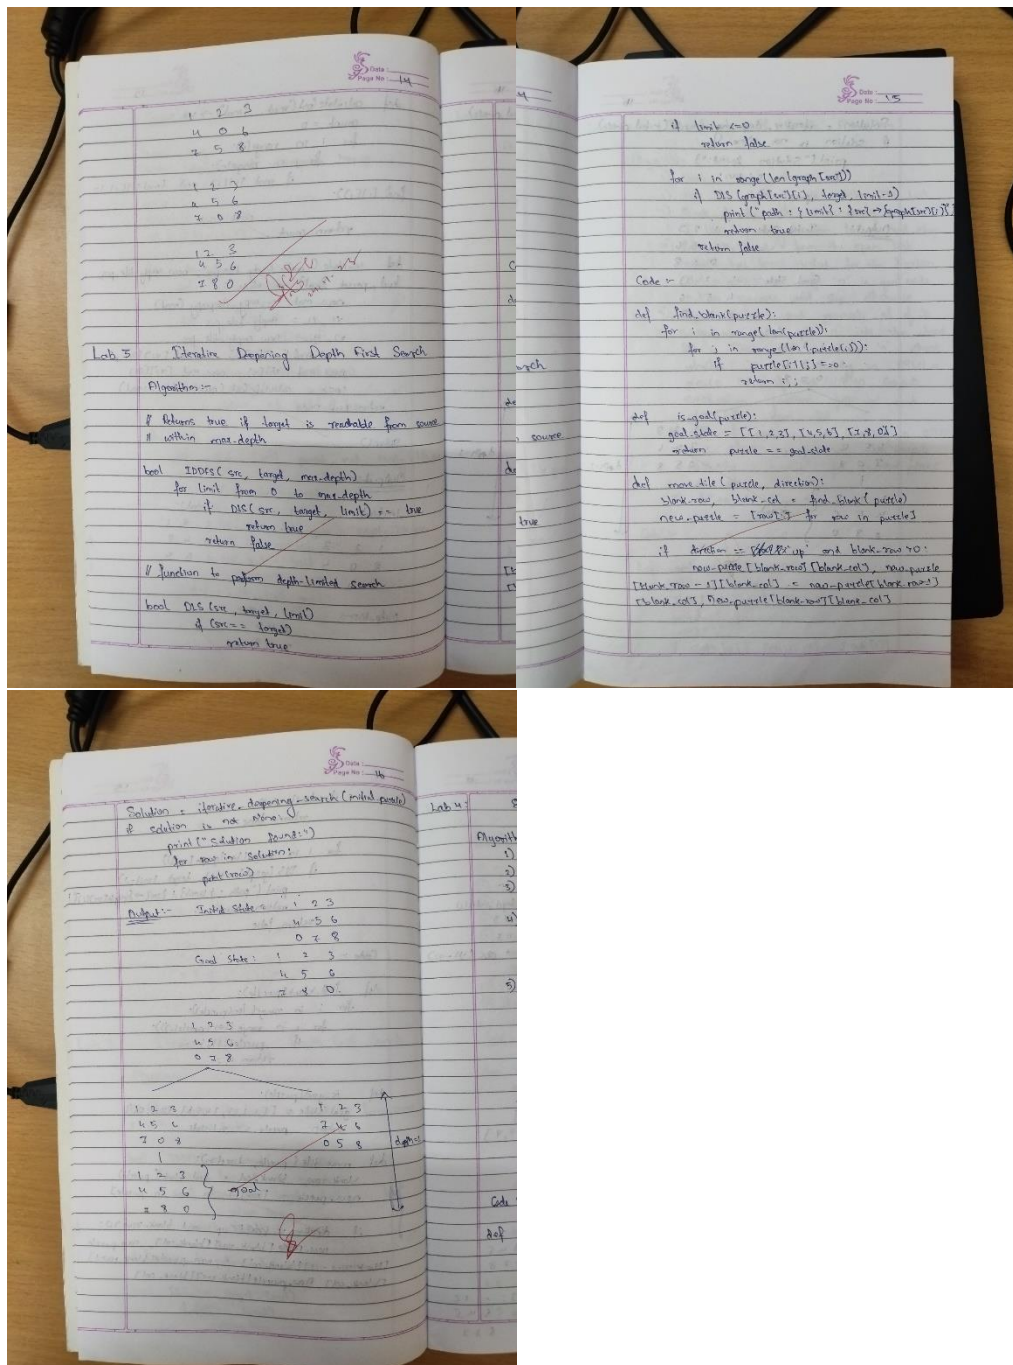 Date :
Page No : 14
1 2 3
4 0 6
7 5 8
1 2 3
4 5 6
7 0 8
1 2 3
4 5 6
7 8 0
Lab 3 Iterative Deepening Depth First Search
Algorithm:-
// Returns true if target is reachable from source
// within max-depth
bool IDDFS( src, target, max-depth)
for limit from 0 to max-depth
if DLS( src, target, limit) == true
return true
return false
// function to perform depth-limited search
bool DLS (src, target, limit)
if (src == target)
return true
Date :
Page No : 15
if limit <=0
return false
for i in range (len(graph[src]))
if DLS (graph[src][i], target, limit-1)
print ("path : {limit} : {src} → {graph[src][i]}")
return true
return false
Code :-
def find_blank(puzzle):
for i in range( len(puzzle)):
for j in range (len (puzzle[i])):
if puzzle[i][j] == 0
return i, j
def is-goal(puzzle):
goal-state = [[1,2,3], [4,5,6], [7,8,0]]
return puzzle == goal-state
def move-tile ( puzzle, direction):
blank-row, blank-col = find_blank ( puzzle)
new-puzzle = [row[:] for row in puzzle]
if direction == 'up' and blank-row >0:
new-puzzle [blank-row] [blank-col], new-puzzle
[blank-row - 1][blank-col] = new-puzzle[blank-row-1]
[blank-col], New-puzzle[blank-row][blank-col]
arch
source
true
Date :
Page No : 16
Solution = iterative-deepening-search (initial puzzle)
if solution is not None:
print ("Solution found:")
for row in solution:
print(row)
Output:- Initial State : 1 2 3
4 5 6
0 7 8
Goal State : 1 2 3
4 5 6
7 8 0
1 2 3
4 5 6
0 7 8
1 2 3 1 2 3
4 5 6 7 4 6
7 0 8 0 5 8
depth=
1 2 3
4 5 6 goal.
7 8 0
Lab 4:
Algorith
1)
2)
3)
4)
5)
Code
def